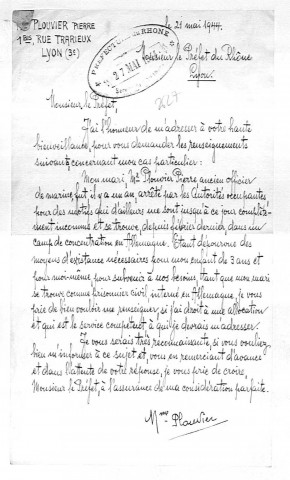 Mme PLOUVIER PIERRE
1 BIS RUE TRARIEUX
LYON (3e)
le 21 mai 1944.
PREFECTURE DU RHONE
27 MAI
Monsieur le Préfet du Rhône
Lyon.
Monsieur le Préfet,
J'ai l'honneur de m'adresser à votre haute
bienveillance, pour vous demander les renseignements
suivants concernant mon cas particulier :
Mon mari, Mr Plouvier Pierre ancien officier
de marine, fut, il y a un an, arrêté par les Autorités occupantes
pour des motifs qui d'ailleurs me sont jusqu'à ce jour complète-
ment inconnus et se trouve depuis février dernier dans un
camp de concentration en Allemagne. Etant dépourvue des
moyens d'existance nécessaires pour mon enfant de 3 ans et
pour moi-même pour subvenir à nos besoins, tant que mon mari
se trouve comme prisonnier civil interné en Allemagne, je vous
prie de bien vouloir me renseigner, si j'ai droit à une allocation
et qui est le service compétent à qui je devrais m'adresser.
Je vous serais très reconnaissante, si vous vouliez
bien m'informer à ce sujet et, vous en remerciant d'avance
et dans l'attente de votre réponse, je vous prie de croire,
Monsieur le Préfet, à l'assurance de ma considération parfaite.
Mme Plouvier